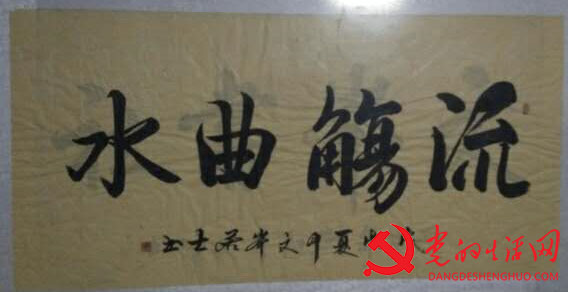 流觴曲水
党的生活网
DANGDESHENGHUO.COM